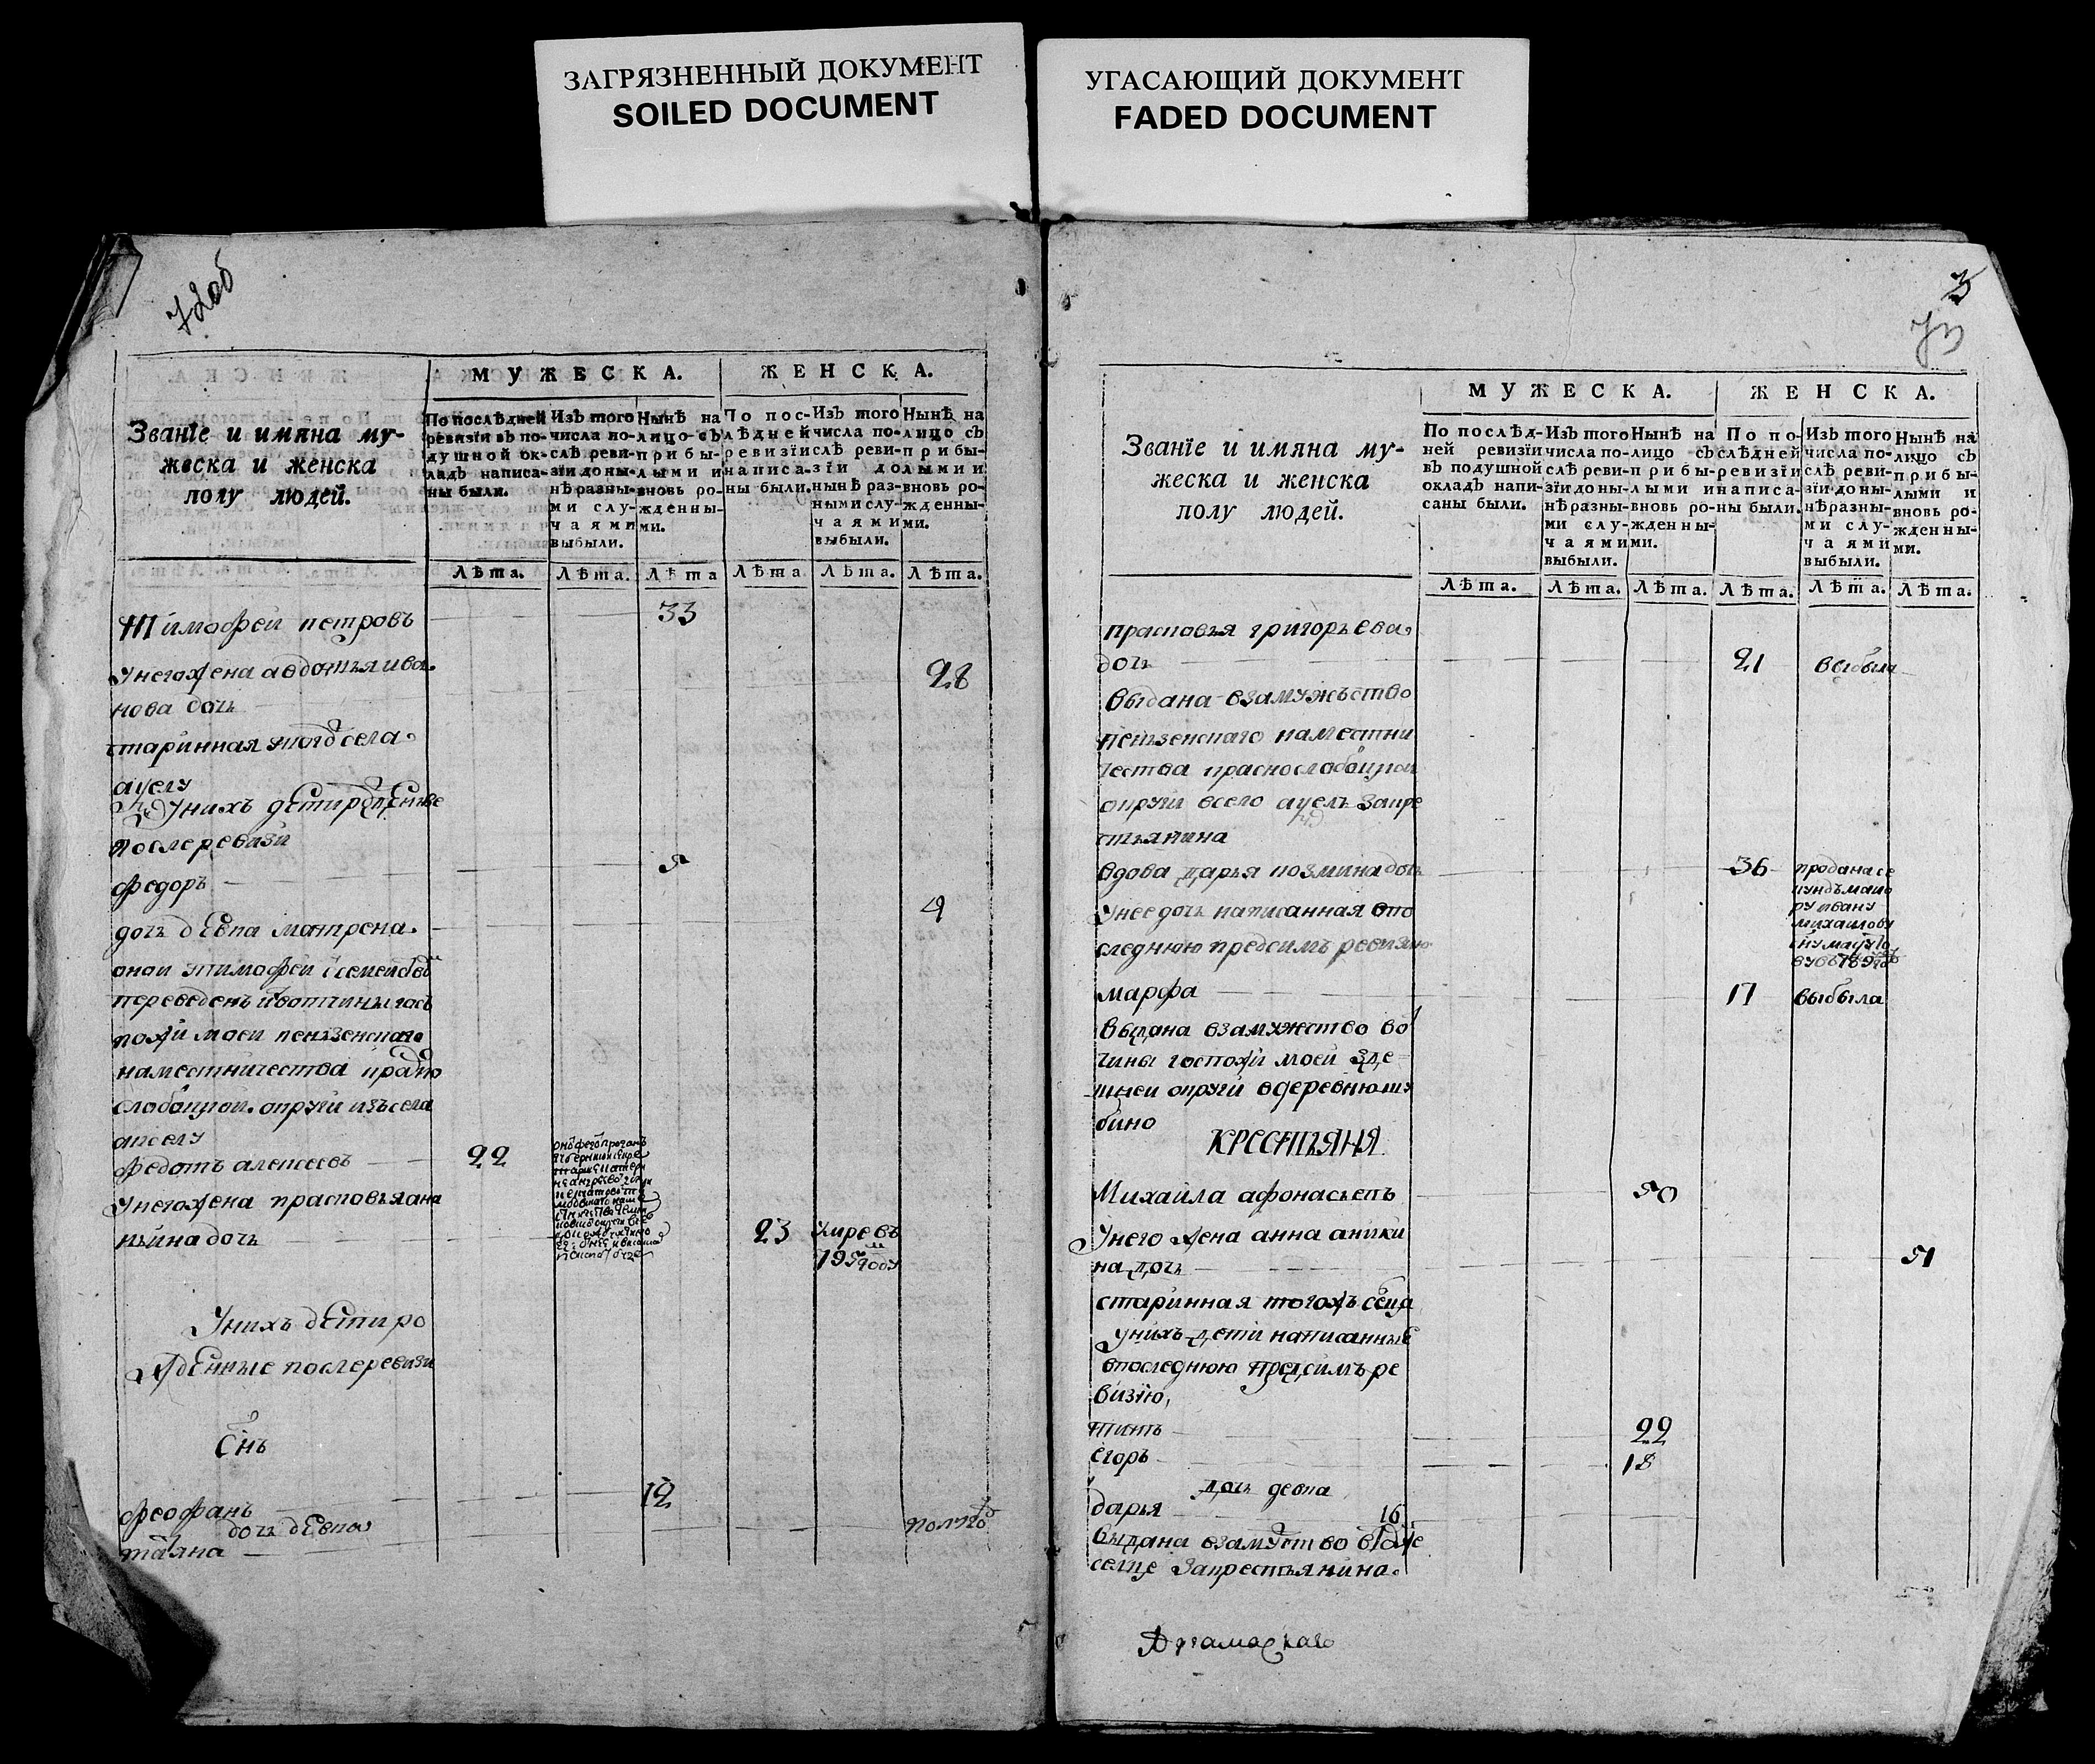 ЗАГРЯЗНЕННЫЙ ДОКУМЕНТ
SOILED DOCUMENT
УГАСАЮЩИЙ ДОКУМЕНТ
FADED DOCUMENT
72об
МУЖЕСКА.
ЖЕНСКА.
Званїе и имяна му-
жеска и женска
полу людей.
По послѣдней
ревизїи въ по-
душной ок-
ладъ написа-
ны были.
Изъ того
числа по-
слѣ реви-
зїи до ны-
нѣ разны-
ми слу-
чаями
выбыли.
Нынѣ на
лицо съ
прибы-
лыми и
вновь ро-
жденны-
ми.
По пос-
лѣдней
ревизїи
написа-
ны были.
Изъ того
числа по-
слѣ реви-
зїи до
нынѣ раз-
ными слу-
чаями
выбыли.
Нынѣ на
лицо съ
прибы-
лыми и
вновь ро-
жденны-
ми.
Лѣта. Лѣта. Лѣта Лѣта Лѣта. Лѣта.
Тимофей петровъ 33
Унегожена авдотья ива
нова дочь 28
старинная тогосела
ацелу
Унихъ дети
послеревизи
федоръ 5
дочь девка матрена 4
оной тимофей
переведенъ вотчины гос
пожи моей пензенскаго
наместничества красно
слобоцкой округи изъсела
федотъ алексеевъ 22
Унегожена прасковья
дочь 23 умре въ
году
Унихъ дети ро
жденные послеревизи
Снъ
феофанъ 12
дочь девка
татяна полгод
73
МУЖЕСКА.
ЖЕНСКА.
Званїе и имяна му-
жеска и женска
полу людей.
По послѣд-
ней ревизїи
въ подушной
окладъ напи-
саны были.
Изъ того
числа по-
слѣ реви-
зїи до ны-
нѣ разны-
ми слу-
чаями
выбыли.
Нынѣ на
лицо съ
прибы-
лыми и
вновь ро-
жденны-
ми.
По по-
слѣдней
ревизїи
написа-
ны были.
Изъ того
числа по-
слѣ реви-
зїи до ны-
нѣ разны-
ми слу-
чаями
выбыли.
Нынѣ на
лицо съ
прибы-
лыми и
вновь ро-
жденны-
ми.
Лѣта. Лѣта. Лѣта. Лѣта. Лѣта. Лѣта.
прасковья григорьева
дочь 21 выбыла
выдана взамужьство
пензенскаго наместни
чества краснослобоцкой
округи всело ацелъ закре
стьянина
вдова дарья козмина дочь 36 продана се
кундъ маио
ру ивану
михаилову
Унее дочь написанная впо
следнюю предсимъ ревизию
марфа 17 выбыла
выдана взамужство во
чины госпожи моей зде
шней округи вдеревню лу
бино
КРЕСТЬЯНЯ
Михайла афонасьевъ 50
Унего жена анна аники
на дочь 51
старинная тогожъ селца
унихъ дети написанные
впоследнюю предсимъ ре
визїю,
титъ 22
егоръ 18
дочь девка
дарья 16
выдана взамуство
селце закрестьянина.